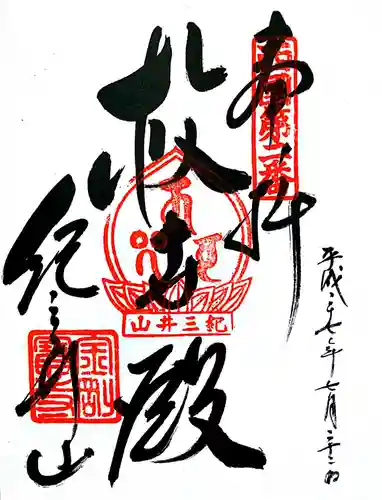 西国第二番
奉拝
平成二十七年七月二十二日
救世殿
紀三井山
紀三井山